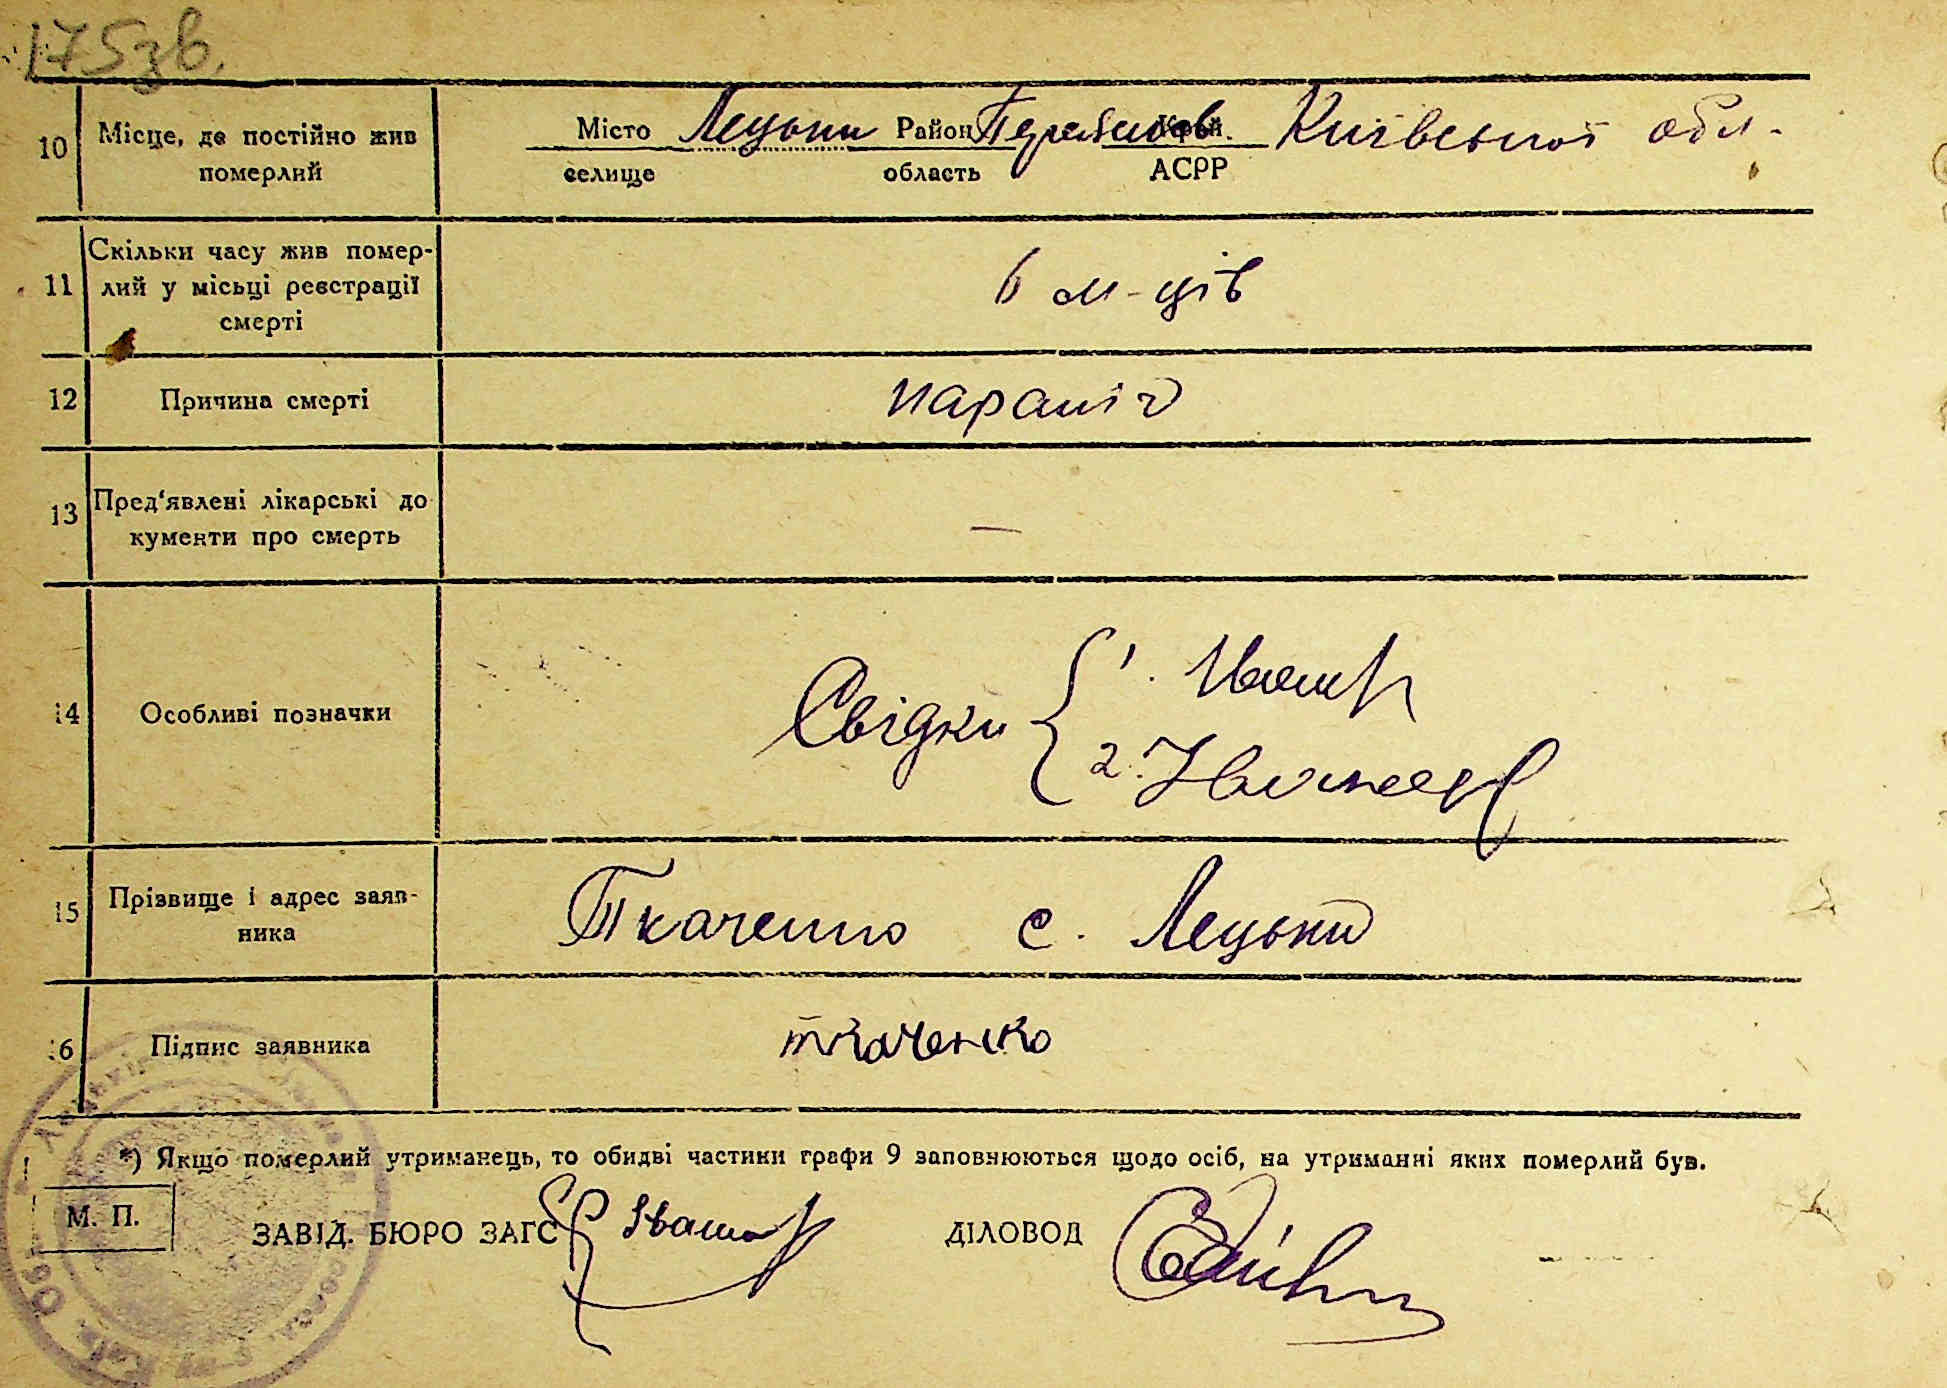 175зв.
10 Місце, де постійно жив померлий
Місто Лецьки Район Переяслов. Край Київської обл.
селище область АСРР
11 Скільки часу жив помер-
лий у місьці реєстрації
смерті
6 м-ців
12 Причина смерті параліч
13 Пред'явлені лікарські до
кументи про смерть
—
14 Особливі позначки Свідки { 1.
2.
15 Прізвище і адрес заяв-
ника
Ткаченко с. Лецьки
16 Підпис заявника ткаченко
*) Якщо померлий утриманець, то обидві частини графи 9 заповнюються щодо осіб, на утриманні яких померлий був.
М. П.
ЗАВІД. БЮРО ЗАГС ДІЛОВОД